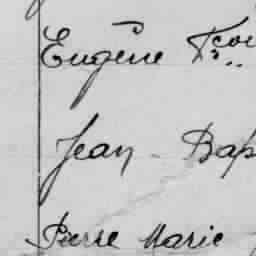 Eugène Fçoi
Jean - Bap
Pierre Marie